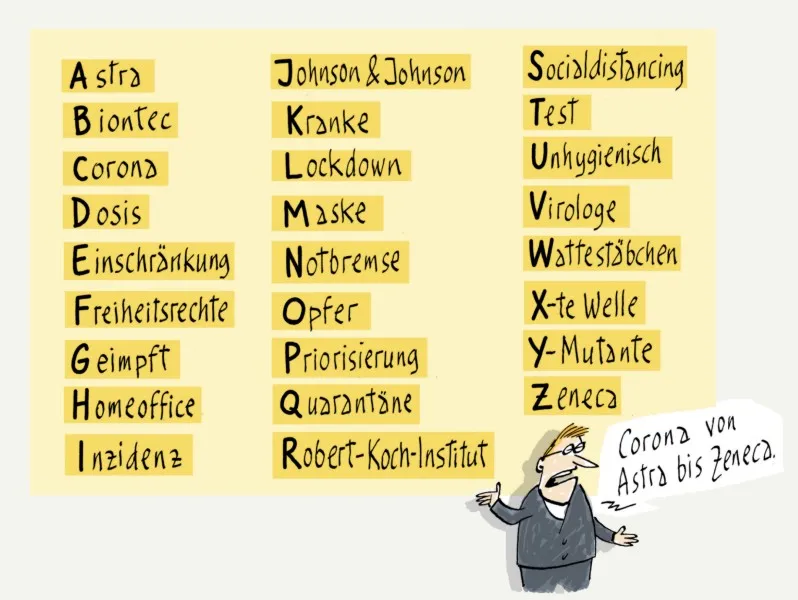 Astra
Biontec
Corona
Dosis
Einschränkung
Freiheitsrechte
Geimpft
Homeoffice
Inzidenz
Johnson & Johnson
Kranke
Lockdown
Maske
Notbremse
Opfer
Priorisierung
Quarantäne
Robert-Koch-Institut
Socialdistancing
Test
Unhygienisch
Virologe
Wattestäbchen
X-te Welle
Y-Mutante
Zeneca
Corona von
Astra bis Zeneca.